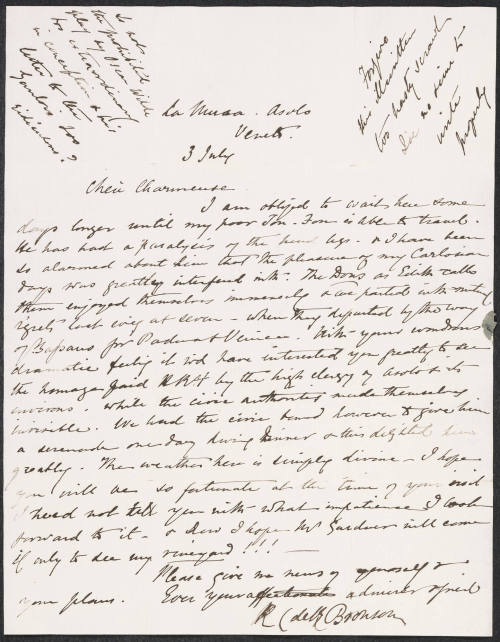 Is not
the prohibited Wilde
play by Oscar
too extraordinary
in conception & his
letter to the
Gaulois too
ridiculous?
Forgive
this ill written
too hasty scrawl
no time to
write
properly
La Mura. Asolo
Veneto
3 July
Chère Charmeuse
I am obliged to wait here some
days longer until my poor Fon-Fon is able to travel.
He has had a paralysis of the hind legs. & I have been
so alarmed about him that the pleasure of my
days was greatly interfered with. The Dons as Edith calls
them enjoyed themselves immensely & we parted with mutual
regrets last eveg at seven - when they departed by the way
of Bassano for Padua & Venice. With your wondrous
dramatic feelig it wd have interested you greatly to see
the homage paid H.R.H by the high clergy of Asolo & its
environs. while the civic authorities made themselves
invisible. We had the civic band however to give him
a serenade one day during dinner & this delighted him
greatly. The weather here is simply divine - I hope
you will be so fortunate at the time of your visit
I need not tell you with what impatience I look
forward to it - & how I hope Mr Gardner will come
if only to see my vineyard !!! -
Please give me news of yourself &
your plans. Ever your affectionate admirer & friend
K (de K) Bronson